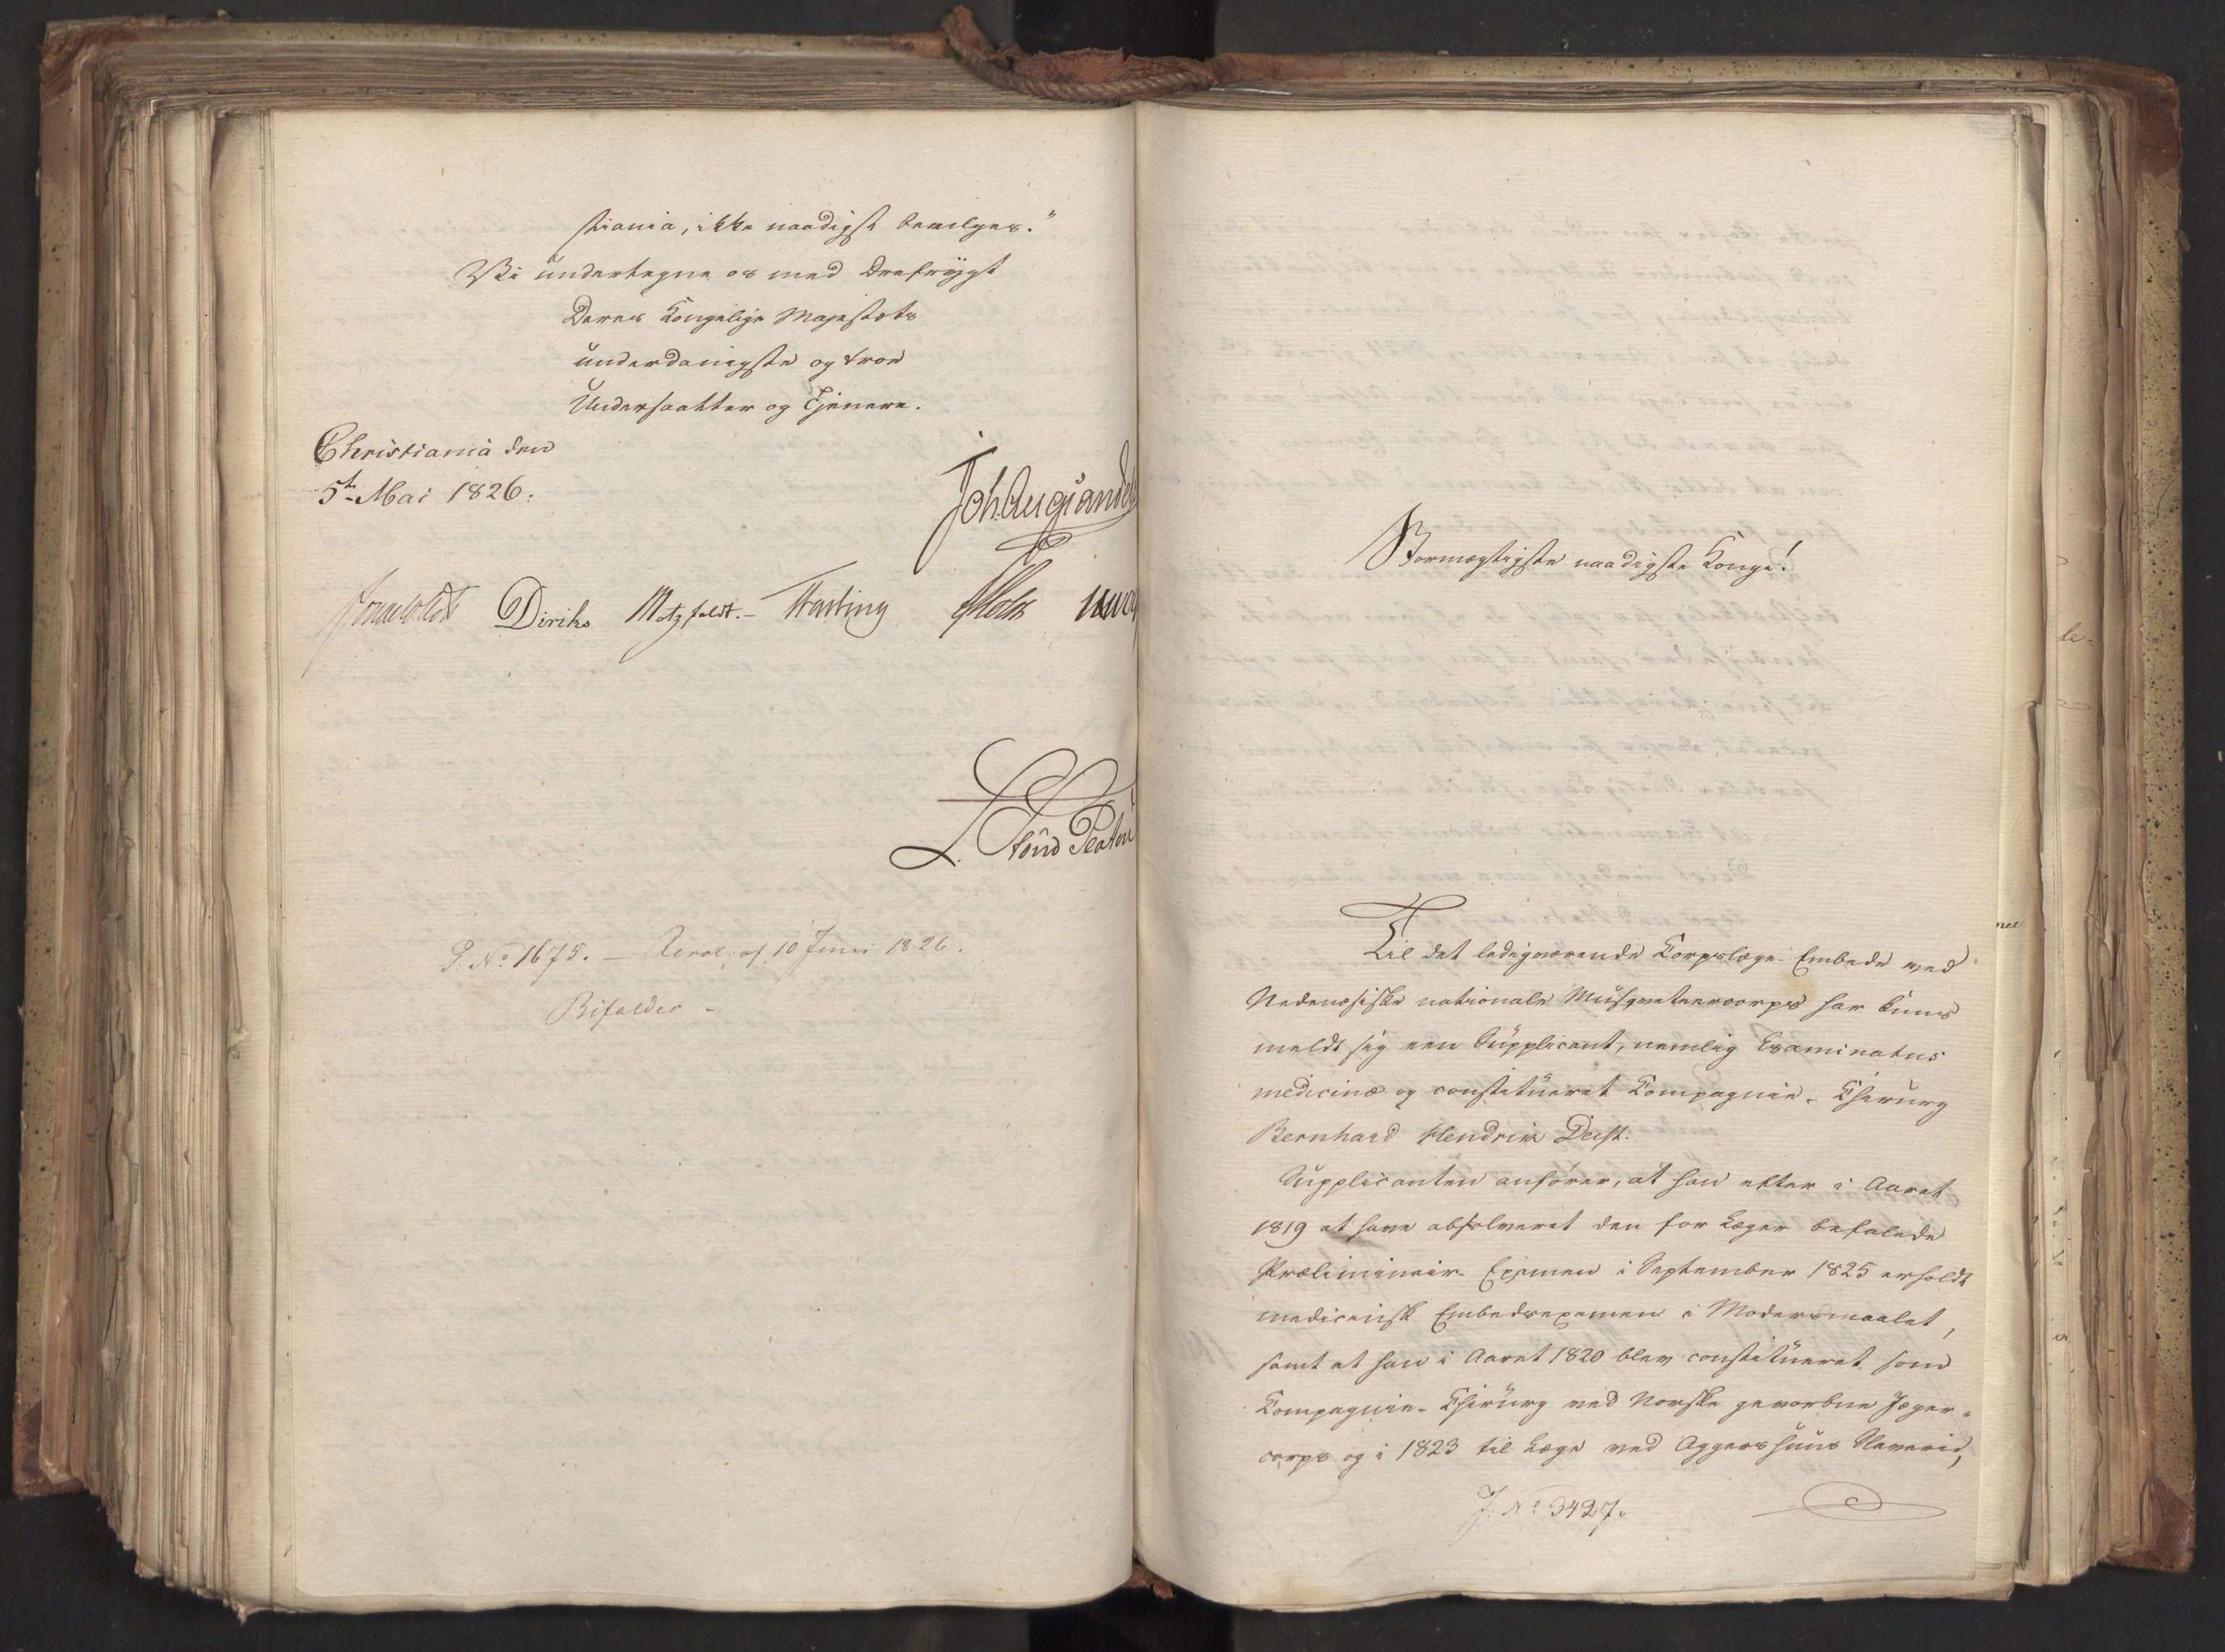 stiania, ikke naadigst bevilges."
Vi undertegne os med Ærefrygt
Deres Kongelige Majestæts
underdanigste og troe
Undersaatter og Tjenere.
Christiania den
5te Mai 1826.
Joh. Aug. Sandels
Sommerfeldt Diriks Motzfeldt.- Fasting Holst
L. Stoud Platou
P. No 1675. — Resol. af 10 Juni 1826.
Bifaldes -
Stormægtigste naadigste Konge!
Til det ledigværende Corpslæge-Embede ved
Nedenæsiske nationale Musqueteercorps har kuns
meldt sig een Supplicant, nemlig Examinatus
medicinæ og constitueret Compagnie-Chirurg
Bernhard Hendrik
Supplicanten anfører, at han efter i Aaret
1819 at have absolveret den for Læger befalede
Præliminair-Examen i September 1825 erholdt
medicinsk Embedsexamen i Modersmaalet,
samt at han i Aaret 1820 blev constitueret som
Compagnie-Chirurg ved Norske gevorbne Jæger-
corps og i 1823 til Læge ved Aggershuus Slaverie,
J. No 3427.